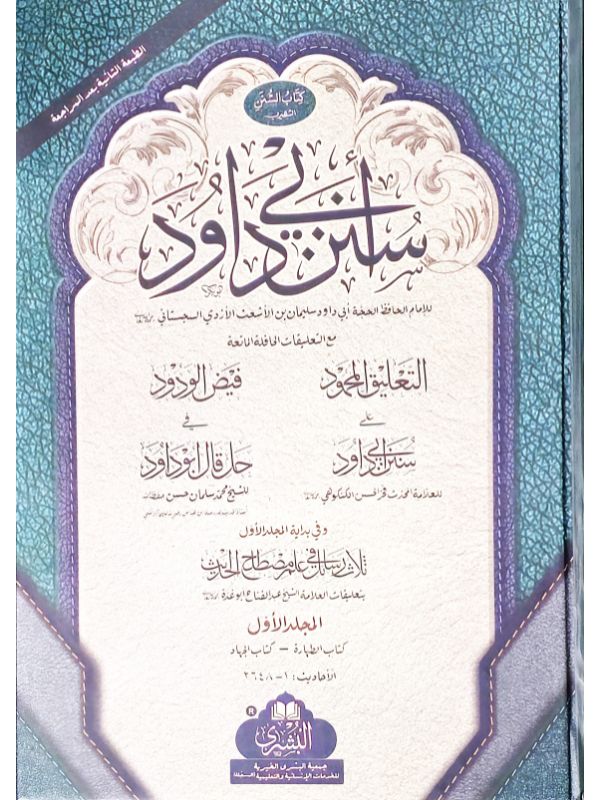 الطبعة الثانية بعد المراجعة
كتاب السنن
الشهير بـ
سنن أبي داود
للإمام الحافظ الحجة أبي داود سليمان بن الأشعث الأزدي السجستاني
مع التعليقات الحافلة الماتعة
التعليق المحمود
على
سنن أبي داود
للعلامة المحدث فخر الحسن الگنگوهي
فيض الودود
في
حل قال ابو داود
للشيخ محمد سلمان حسن
وفي بداية المجلد الأول
ثلاث رسائل في علم مصطلح الحديث
بتعليقات العلامة الشيخ عبد الفتاح ابو غدة
المجلد الأول
كتاب الطهارة – كتاب الجهاد
الأحاديث: ١-٢٦٤٨
®
البشرى
جمعية البشرى الخيرية
للخدمات الإنسانية والتعليمية